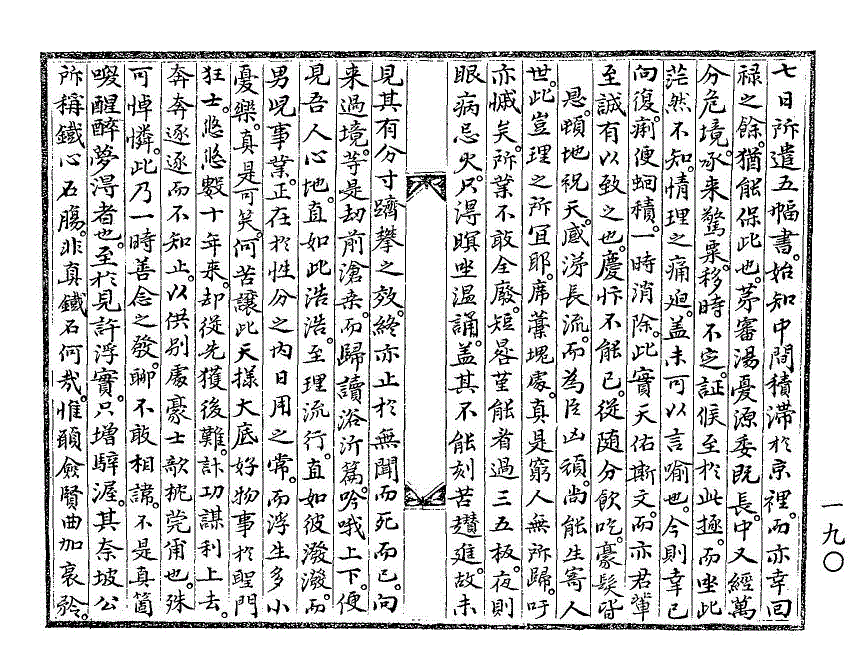 七日所遣五幅書。始知中間積滯於京裡。而亦幸回
祿之餘。猶能保此也。荐審湯憂源委旣長。中又經萬
分危境。承來驚栗。移時不定。証候至於此極。而坐此
茫然不知。情理之痛迫。盖未可以言喩也。今則幸已
向復。痢便蛔積。一時消除。此實天佑斯文。而亦君輩
至誠有以致之也。慶忭不能已。從隨分飮吃。豪髮皆
恩。頓地祝天。感涕長流。而爲臣凶頑。尙能生寄人
世。此豈理之所冝耶。席藁塊處。眞是窮人無所歸。吁
亦慽矣。所業不敢全廢。短晷堇能看過三五板。夜則
眼病忌火。只得暝坐温誦。盖其不能刻苦趲進。故未
見其有分寸躋攀之效。終亦止於無聞而死而已。向
來過境。等是刧前滄桑。而歸讀浴沂篇。吟哦上下。便
見吾人心地。直如此浩浩。至理流行。直如彼潑潑。而
男兒事業。正在於性分之內日用之常。而浮生多小
憂樂。眞是可笑。何苦讓此天㨾大底好物事於聖門
狂士。悠悠數十年來。却從先獲後難。計功謀利上去。
奔奔逐逐而不知止。以供别處豪士歌椀莞甫也。殊
可悼憐。此乃一時善念之發。聊不敢相諱。不是眞箇
喚醒醉夢淂者也。至於見許浮實。只增騂渥。其奈坡公
所稱鐵心石膓。非眞鐵石何哉。惟願僉賢曲加哀矜。
一九〇